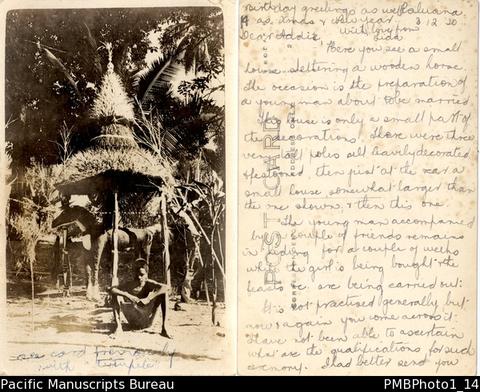 Birthday greetings as well
Raluana
as Xmas & New year. 3 12 20
Dear Addie, with love from
Here you see a small
house sheltering a wooden horse.
The occasion is the preparation of
a young man about to be married.
This house is only a small part of
the decorations. There were three
very tall poles all heavily decorated
& festooned, then just at the rear a
small house somewhat larger than
the one shown, & then this one.
The young man accompanied
by a couple of friends remains
in hiding for a couple of weeks
while the girl is being bought & the
feasts etc. are being carried out.
It is not practised generally but
now & again you come across it.
Have not been able to ascertain
what are the qualifications for such
ceremony. I had better send you
POST CARD
see card previously
with
Pacific Manuscripts Bureau
PMBPhoto1_14